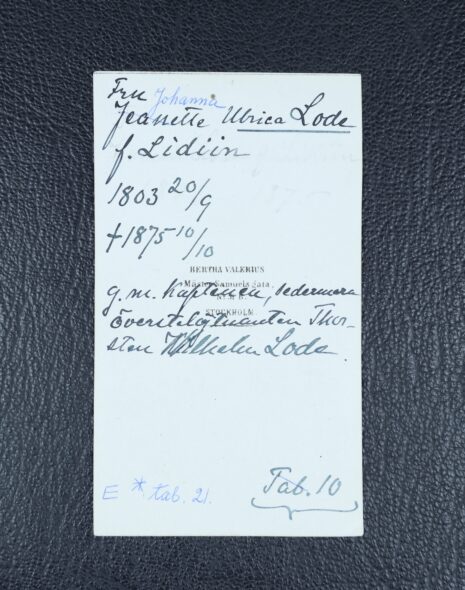 Fru Johanna
Jeanette Ulrica Lode
f. Lidiin
1803 20/9
†1875 10/10
BERTHA VALERIUS
Mäster Samuels gata,
STOCKHOLM
g.m. Kaptenen, sedermera
Överstelöjtnanten Thor-
sten Wilhelm Lode.
E * tab. 21.
Tab. 10